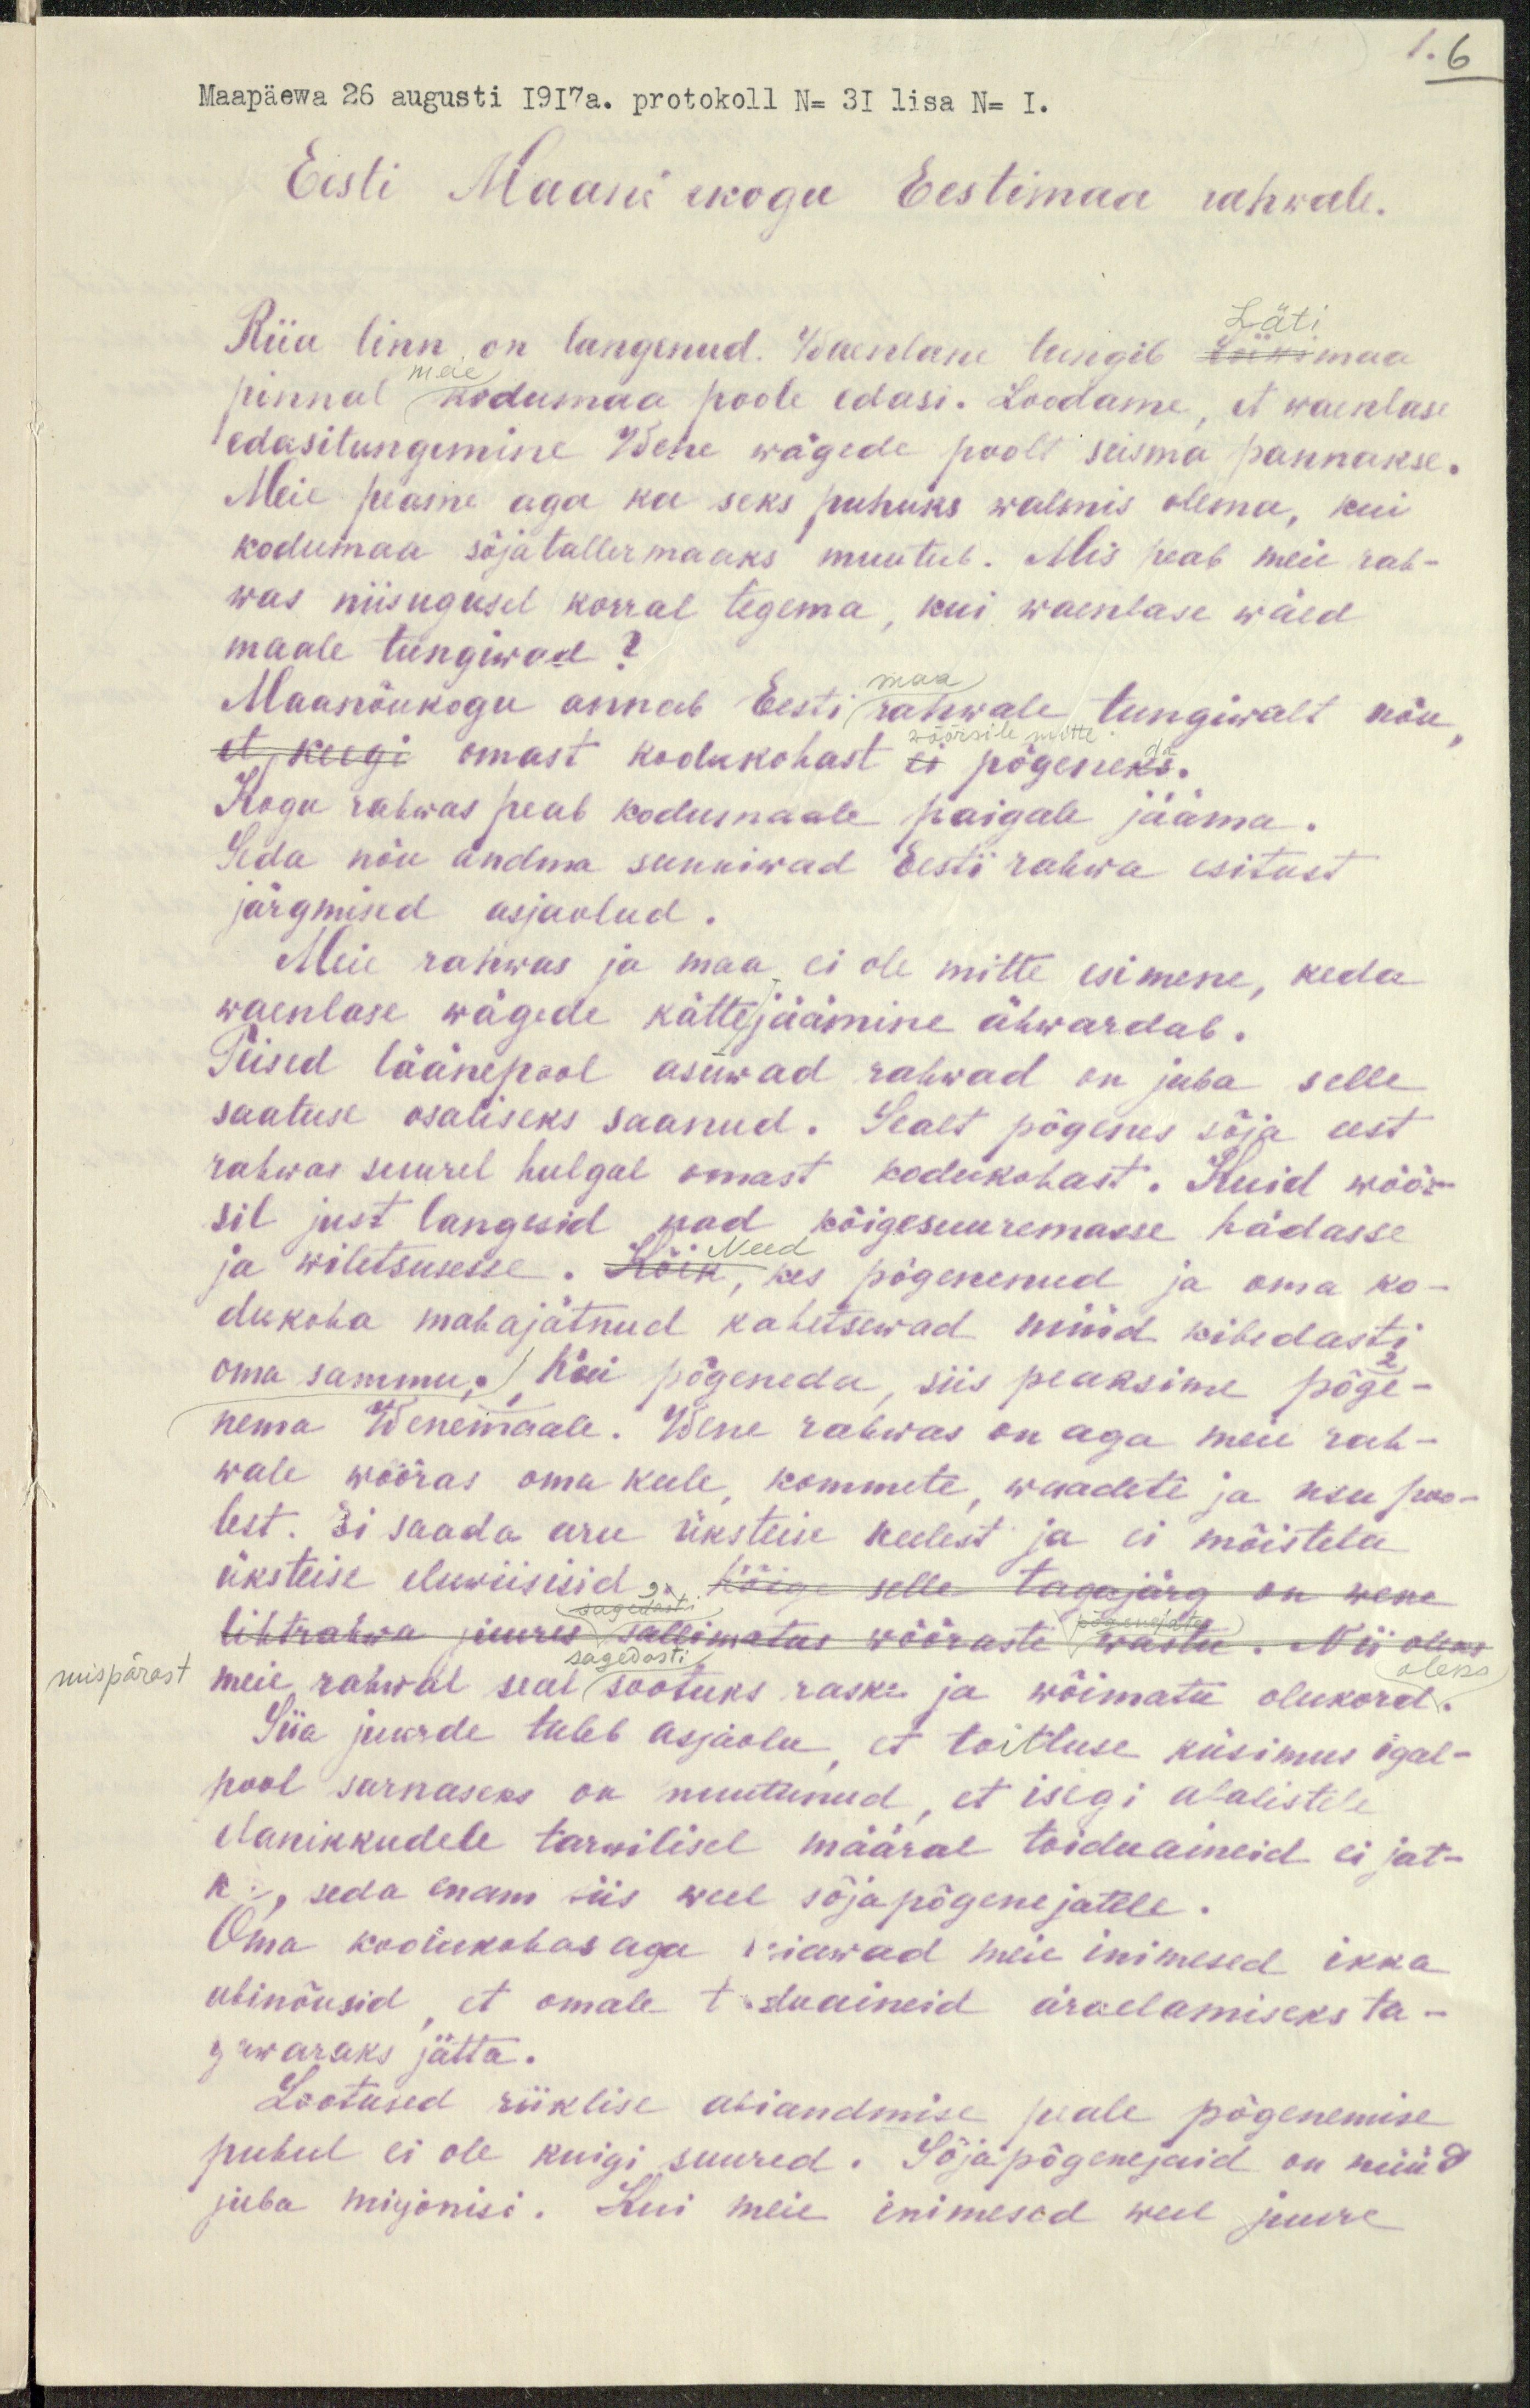 1. 6
Maapäewa 26 augusti 1917a. protokoll N= 31 lisa N= 1.
Eesti Maanõukogu Eestimaa rahwale.
Läti
Riia linn on langenud. Waenlane tungib maa
meie
pinnal kodumaa poole edasi. Loodame, et waenlase
edasitungimine Wene wägede poolt seisma pannakse.
Meie peame aga ka seks puhuks walmis olema, kui
kodumaa sõjatallermaaks muutub. Mis peab meie rah-
was niisugusel korral tegema, kui waenlase wäed
maale tungiwad?
maa
Maanõukogu annab Eesti rahwale tungiwalt nõu,
wõõrsile mitte da
et keegi omast kodukohast ei põgeneks.
Kogu rahwas peab kodumaale paigale jääma.
Seda nõu andma sunniwad Eesti rahwa esitust
järgmised asjaolud.
Meie rahwas ja maa ei ole mitte esimene, keda
waenlase wägede kättejäämine ähwardab.
Teised läänepool asuwad rahwad on juba selle
saatuse osaliseks saanud. Sealt põgenes sõja eest
rahwas suurel hulgal omast kodukohast. Kuid wöör-
sil just langesid nad kõigesuuremasse hädasse
Need
ja wiletsusesse. Kõik, kes põgenenud ja oma ko-
dukoha mahajätnud kahetsewad nüüd kibedasti
oma sammu. Kui põgeneda, siis peaksime põge-
nema Wenemaale. Wene rahwas on aga meie rah-
wale wööras oma keele, kommete, waadete ja usu poo-
lest. Ei saada aru üksteise keelest ja ei mõisteta
üksteise eluwiisisid. Kõige selle tagajärg on wene
sagedasti põgenejate
lihtrahwa juures sallimatus wööraste wastu. Nii oleks
sagedasti oleks
mispärast meie rahwal seal sootuks raske ja wõimatu olukord.
Siia juurde tuleb asjaolu, et toitluse küsimus igal-
pool sarnaseks on muutunud, et isegi alalistele
elanikkudele tarwilisel määral toiduaineid ei jat-
k, seda enam siis weel sõjapõgenejatele.
Oma kodukohas aga wiawad meie inimesed ikka
abinõusid, et omale toiduaineid äraelamiseks ta-
gawaraks jätta.
Lootused riiklise abiandmise peale põgenemise
puhul ei ole kuigi suured. Sõjapõgenejaid on nüüd
juba miljonisi. Kui meie inimesed weel juure